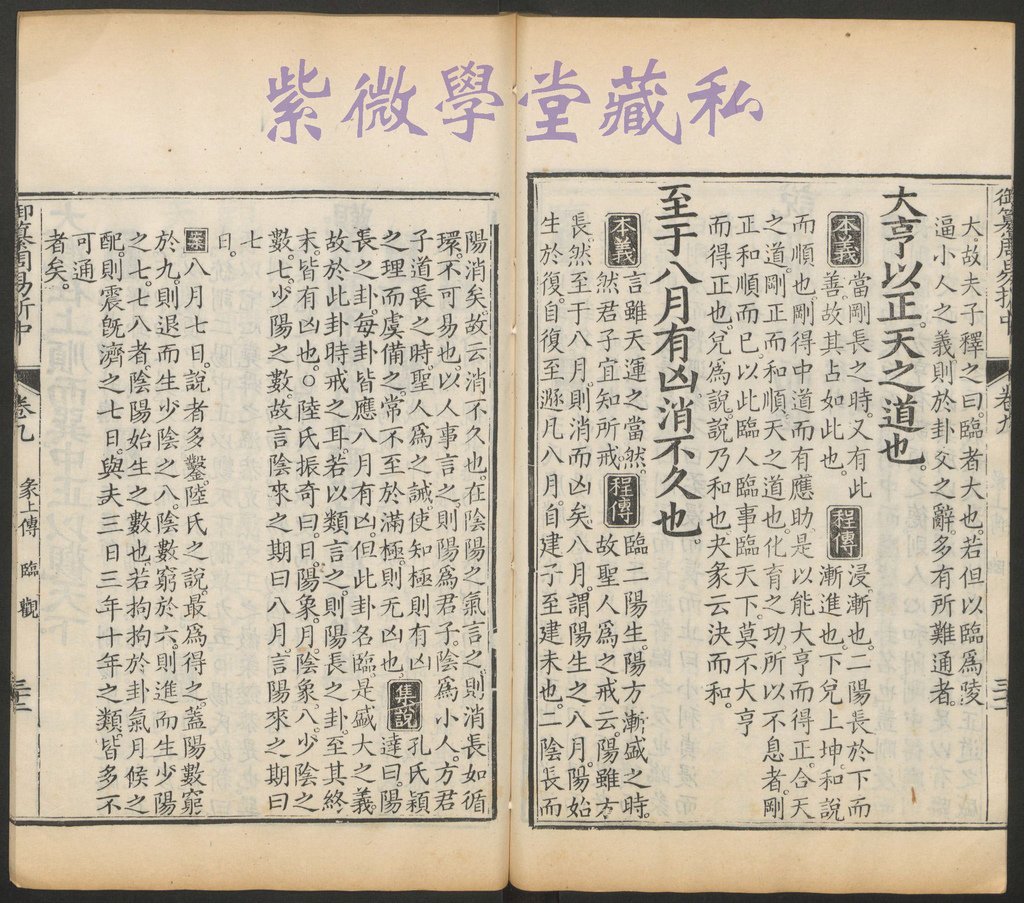 紫微學堂藏私
大。故夫子釋之曰。臨者大也。若但以臨為陵
逼小人之義。則於卦爻之辭。多有所難通者。
大亨以正。天之道也。
本義 當剛長之時。又有此善。故其占如此也。
程傳 浸漸也。二陽長於下而漸進也。下兌上坤。和說
而順也。剛得中道而有應助。是以能大亨而得正。合天
之道。剛正而和順。天之道也。化育之功。所以不息者。剛
正和順而已。以此臨人臨事臨天下。莫不大亨
而得正也。兌為說。說乃和也。夬彖云決而和。
至于八月有凶。消不久也。
本義 言雖天運之當然。然君子宜知所戒。
程傳 臨二陽生。陽方漸盛之時。故聖人為之戒云。陽雖方
長。然至于八月。則消而凶矣。八月。謂陽生之八月。陽始
生於復。自復至遯。凡八月。自建子至建未也。二陰長而
陽消矣。故云消不久也。在陰陽之氣言之。則消長如循
環。不可易也。以人事言之。則陽為君子。陰為小人。方君
子道長之時。聖人為之誡。使知極則有凶
之理。而虞備之。常不至於滿極。則无凶也。
集說 孔氏穎達曰。陽
長之卦。每卦皆應八月有凶。但此卦名臨。是盛大之義。
故於此卦時戒之耳。若以類言之。則陽長之卦。至其終
末。皆有凶也。○陸氏振奇曰。日。陽象。月。陰象。八。少陰之
數。七。少陽之數。故言陰來之期曰八月。言陽來之期曰
七日。
案 八月七日。說者多鑿。陸氏之說。最為得之。蓋陽數窮
於九。則退而生少陰之八。陰數窮於六。則進而生少陽
之七。七八者。陰陽始生之數也。若拘拘於卦氣月候之
配。則震既濟之七日。與夫三日三年十年之類。皆多不
可通者矣。
御纂周易折中
卷九
彖上傳 臨 觀